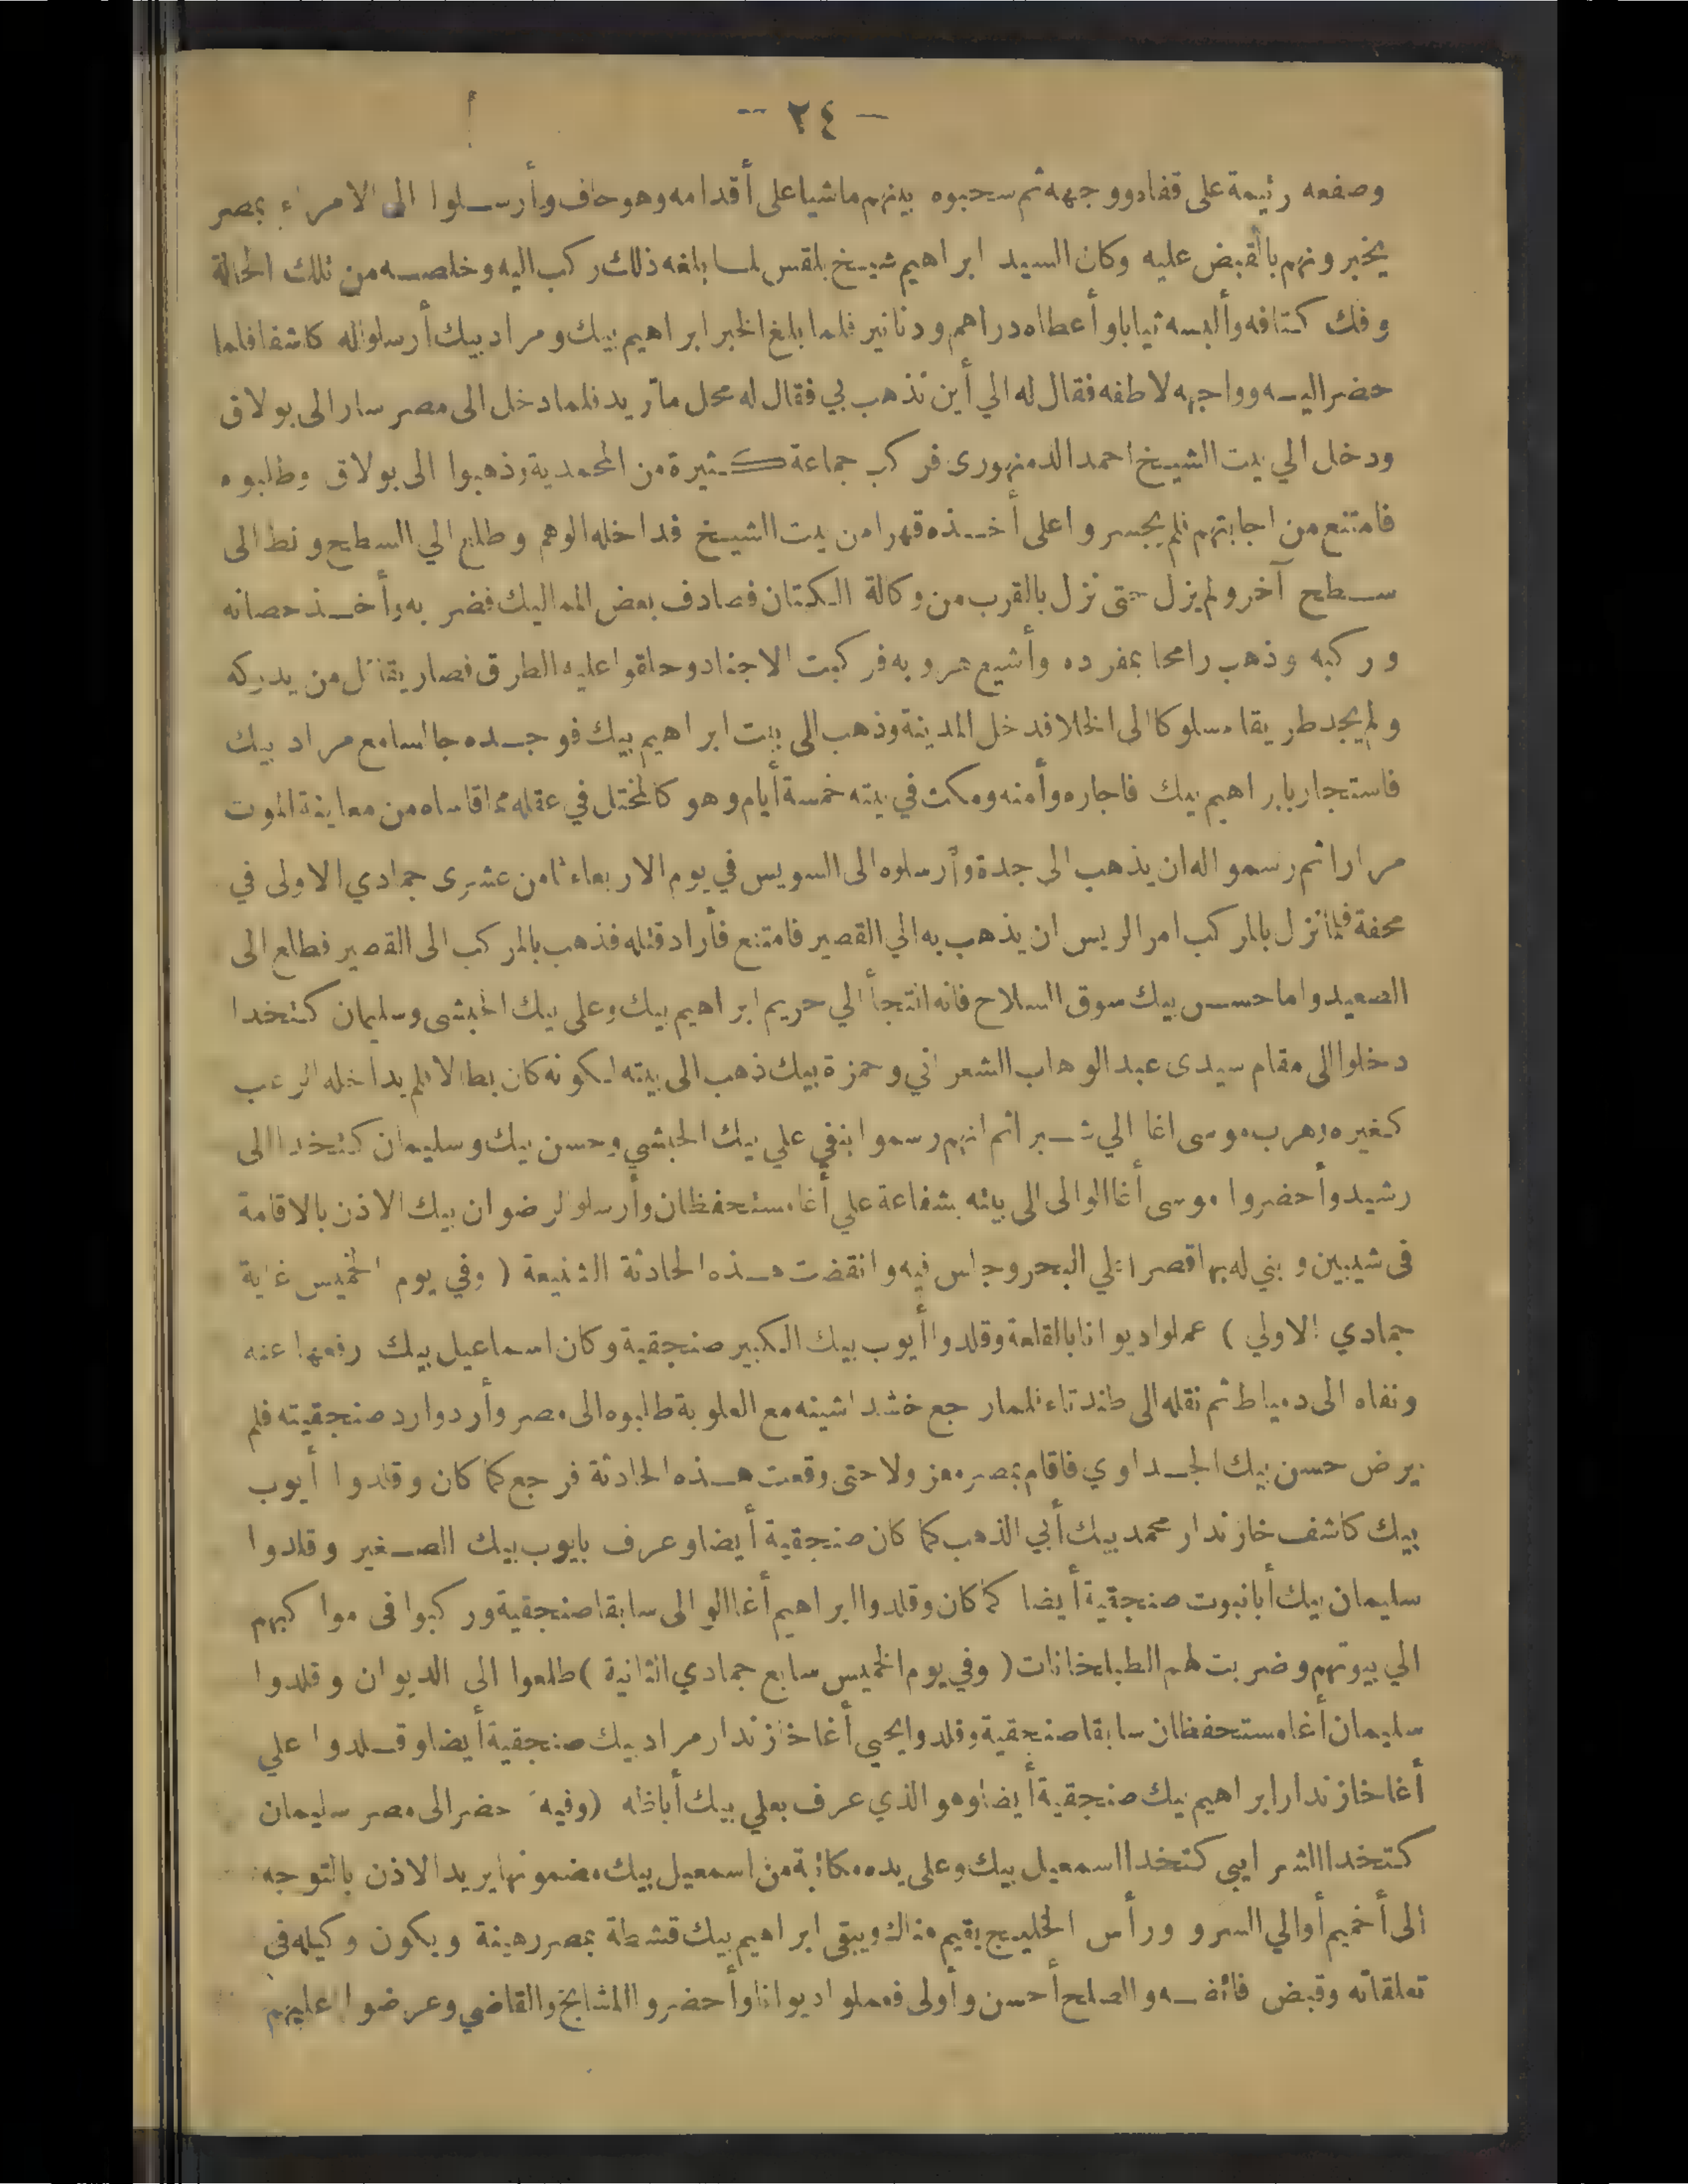 - ٢٤ -
وصفعه رئيمة على قفاه ووجهه ثم سحبوه بينهم ماشيا على أقدامه وهو حاف وأرسلوا الى الامراء بمصر
يخبرونهم بالقبض عليه وكان السيد ابراهيم شيخ بلقس لما بلغه ذلك ركب اليه وخلصه من تلك الحالة
وفك كتافه وألبسه ثيابا وأعطاه دراهم ودنانير فلما بلغ الخبر ابراهيم بيك ومراد بيك أرسلوا له كاشفا فلما
حضر اليه وواجهه لاطفه فقال له الي أين تذهب بي فقال له محل ما تريد فلما دخل الى مصر سار الى بولاق
ودخل الي بيت الشيخ احمد الدمنهورى فركب جماعة كثيرة من المحمدية وذهبوا الى بولاق وطلبوه
فامتنع من اجابتهم فلم يجسروا على أخذه قهرا من بيت الشيخ فداخله الوهم وطلع الي السطح ونط الى
سطح آخر ولم يزل حتى نزل بالقرب من وكالة الكتان فصادف بعض المماليك فضربه وأخذ حصانه
وركبه وذهب رامحا بمفرده وأشيع هروبه فركبت الاجناد وحلقوا عليه الطرق فصار يقاتل من يدركه
ولم يجد طريقا مسلوكا الى الخلا فدخل المدينة وذهب الى بيت ابراهيم بيك فوجده جالسا مع مراد بيك
فاستجار بابراهيم بيك فاجاره وأمنه ومكث في بيته خمسة أيام وهو كالمختل في عقله مما قاساه من معاينة الموت
مرارا ثم رسموا له ان يذهب الى جدة وأرسلوه الى السويس في يوم الاربعاء ثامن عشرى جمادي الاولى في
محفة فلما نزل بالمركب امر الريس ان يذهب به الي القصير فامتنع فأراد قتله فذهب بالمركب الى القصير فطلع الى
الصعيد واما حسن بيك سوق السلاح فانه التجأ الي حريم ابراهيم بيك وعلى بيك الحبشى وسليمان كتخدا
دخلوا الى مقام سيدى عبد الوهاب الشعراني وحمزة بيك ذهب الى بيته لكونه كان بطالا فلم يداخله الرعب
كغيره وهرب موسى اغا الي شبرا ثم انهم رسموا بنفي علي بيك الحبشي وحسن بيك وسليمان كتخدا الى
رشيد وأحضروا موسى أغا الوالى الى بيته بشفاعة علي أغا مستحفظان وأرسلوا لرضوان بيك الاذن بالاقامة
فى شيبين وبني له بها قصرا علي البحر وجلس فيه وانقضت هذه الحادثة الشنيعة ( وفي يوم الخميس غاية
جمادي الاولي ) عملوا ديوانا بالقلعة وقلدوا أيوب بيك الكبير صنجقية وكان اسماعيل بيك رفعها عنه
ونفاه الى دمياط ثم نقله الى طندتاء فلما رجع خشداشينه مع العلوية طلبوه الى مصر وأردوا رد صنجقيته فلم
يرض حسن بيك الجداوي فاقام بمصر معزولا حتى وقعت هذه الحادثة فرجع كما كان وقلدوا أيوب
بيك كاشف خازندار محمد بيك أبي الذهب كما كان صنجقية أيضا وعرف بايوب بيك الصغير وقلدوا
سليمان بيك أبا نبوت صنجقية أيضا كما كان وقلدوا ابراهيم أغا الوالى سابقا صنجقية وركبوا فى مواكبهم
الي بيوتهم وضربت لهم الطبلخانات ( وفي يوم الخميس سابع جمادي الثانية ) طلعوا الى الديوان وقلدوا
سليمان أغا مستحفظان سابقا صنجقية وقلدوا يحيى أغا خازندار مراد بيك صنجقية أيضا وقلدوا علي
أغا خازندار ابراهيم بيك صنجقية أيضا وهو الذي عرف بعلي بيك أباظه ( وفيه حضر الى مصر سليمان
كتخدا الشرايبي كتخدا اسمعيل بيك وعلى يده مكاتبة من اسمعيل بيك مضمونها يريد الاذن بالتوجه
الى أخميم أو الي السرو ورأس الخليج يقيم هناك ويبقى ابراهيم بيك قشطة بمصر رهينة ويكون وكيله فى
تعلقاته وقبض فائضه والصلح أحسن وأولى فعملوا ديوانا وأحضروا المشايخ والقاضي وعرضوا عليهم